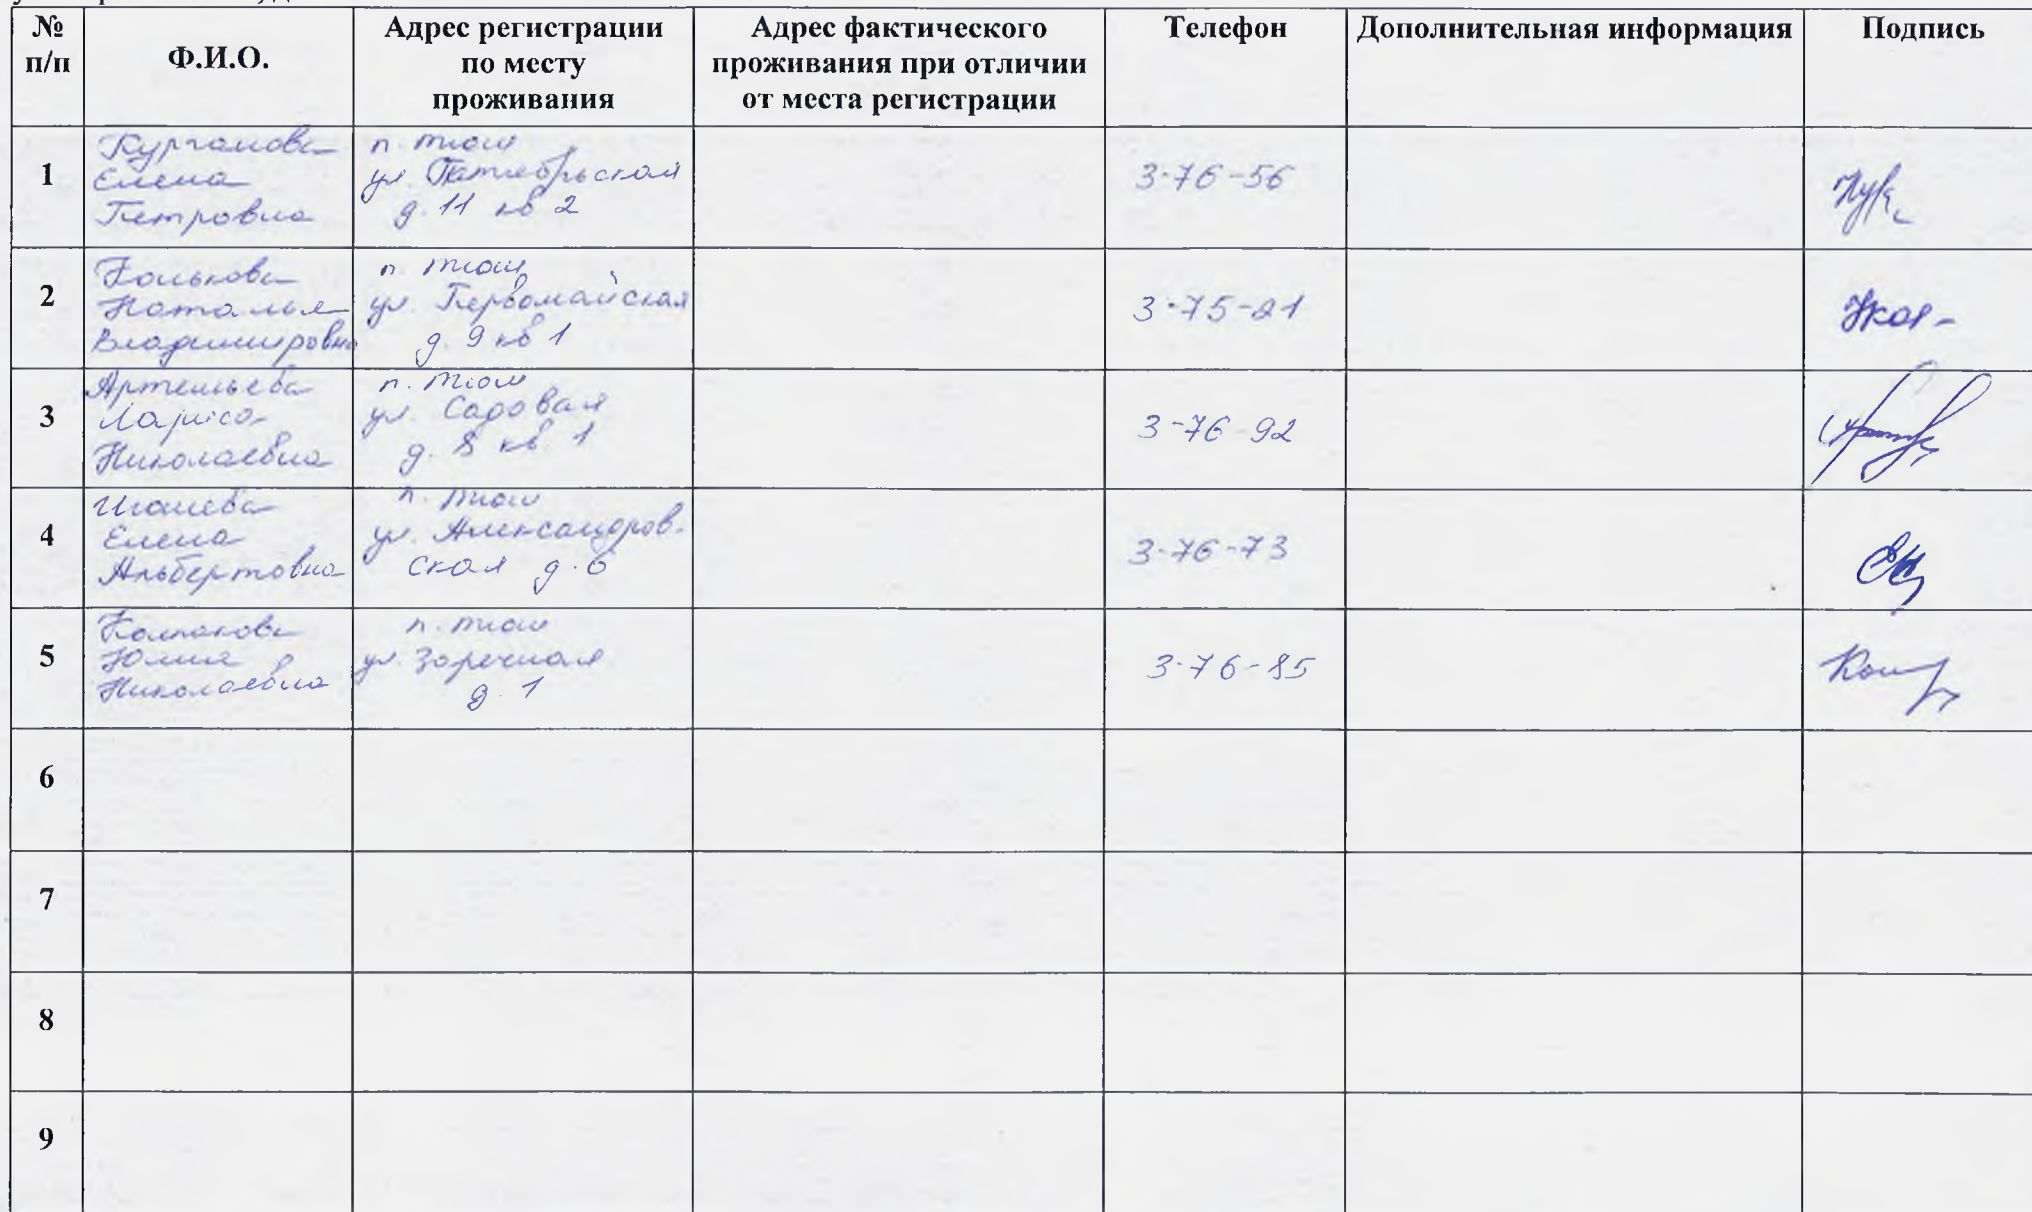 № п/п
Ф.И.О.
Адрес регистрации по месту проживания
Адрес фактического проживания при отличии от места регистрации
Телефон
Дополнительная информация
Подпись
1
Курганова
Елена
Петровна
п. Тюш
ул.
д. 11 кв 2
3-76-56
2
Наталья
Владимировна
п. Тюш
ул. Первомайская
д. 9 кв 1
3-75-21
3
Артемьева
Лариса
Николаевна
п. Тюш
ул. Садовая
д. 8 кв. 1
3-76-92
4
Игошева
Елена
Альбертовна
п. Тюш
ул. Александров-
ская д. 6
3-76-73
5
Колпакова
Юлия
Николаевна
п. Тюш
ул. Заречная
д. 1
3-76-85
6
7
8
9